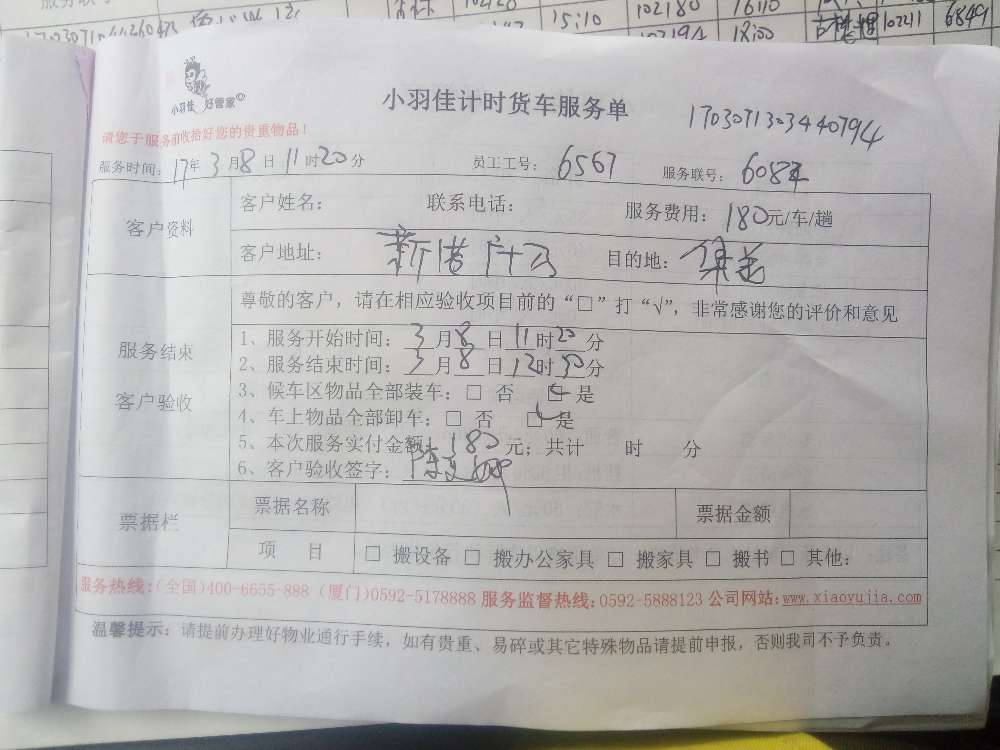 15:10 102180 16:10 102211 6849
102194 18:00
小羽佳 好管家
小羽佳计时货车服务单
17030713034440794
请您于服务前收拾好您的贵重物品！
服务时间：17年3月8日11时20分 员工工号：6567 服务联号：
客户资料
客户姓名： 联系电话： 服务费用：180元/车/趟
客户地址： 目的地：集美
尊敬的客户，请在相应验收项目前的“□”打“√”，非常感谢您的评价和意见
服务结束
客户验收
1、服务开始时间：3月8日11时20分
2、服务结束时间：3月8日12时50分
3、候车区物品全部装车：□ 否 □ 是
4、车上物品全部卸车：□ 否 □ 是
5、本次服务实付金额：180元；共计 时 分
6、客户验收签字：
票据栏
票据名称 票据金额
项 目 □ 搬设备 □ 搬办公家具 □ 搬家具 □ 搬书 □ 其他：
服务热线：(全国)400-6655-888 (厦门)0592-5178888 服务监督热线：0592-5888123 公司网站：www.xiaoyujia.com
温馨提示：请提前办理好物业通行手续，如有贵重、易碎或其它特殊物品请提前申报，否则我司不予负责。